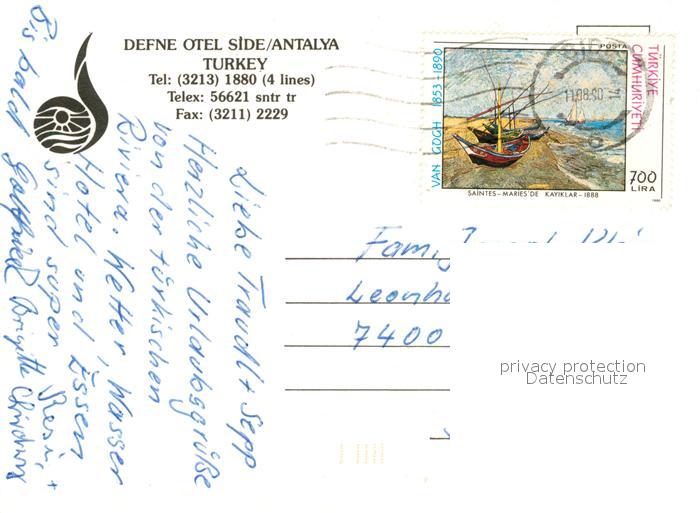 DEFNE OTEL SİDE/ANTALYA
TURKEY
Tel: (3213) 1880 (4 lines)
Telex: 56621 sntr tr
Fax: (3211) 2229
POSTA
TÜRKİYE
CUMHURİYETİ
VAN GOGH 1853-1890
11.08.90.14
700
LIRA
SAINTES-MARIES'DE KAYIKLAR-1888
1990
Liebe Traudl + Sepp
Herzliche Urlaubsgrüße
von der türkischen
Riviera. Wetter, Wasser
Hotel und Essen
sind super
Bis bald
Resi, +
Gottfried Brigitte
Fam.
7400
privacy protection
Datenschutz